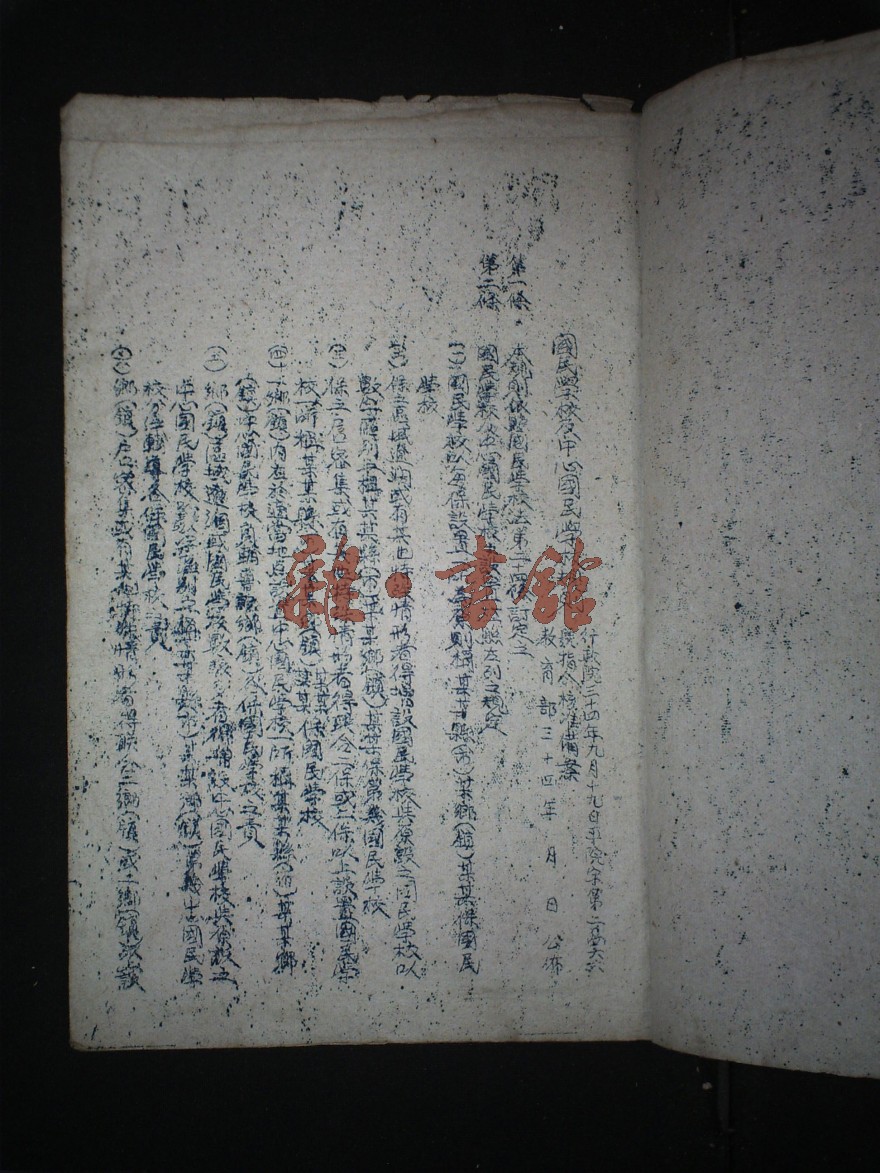 國民學校及中心國民學
行政院三十四年九月十九日平院字第二
號指令核准備案
教育部三十四年 月 日公佈
第一條 本規則依照國民學校法第二十條訂定之
第二條 國民學校及中心國民學校設置應照左列之規定
(一)國民學校以每保設置一所為原則稱某某縣(市)某鄉(鎮)某某保國民
學校
(二)保之區域遼闊或有其他特殊情形者得增設國民學校其後設之國民學校以
數字區別之稱某某縣(市)某某鄉(鎮)某某保第幾國民學校
(三)保之戶口密集或有其他特殊情形者得聯合二保或二保以上設置國民學
校一所稱某某縣 鄉(鎮)某某 某某保國民學校
(四)一鄉(鎮)內應於適當地點設置中心國民學校一所稱某某縣(市)某某鄉
(鎮)中心國民學校負輔導該鄉(鎮)各保國民學校之責
(五)鄉(鎮)區域遼闊或國民學校數較多者得增設中心國民學校其後設之
中心國民學校 數字區別之稱某某縣(市)某某鄉(鎮)第幾中心國民學
校分任輔導各保國民學校之責
(六)鄉(鎮)戶口密集或有其他特殊情形者得聯合二鄉(鎮)或二鄉(鎮)以上設
雜·書館